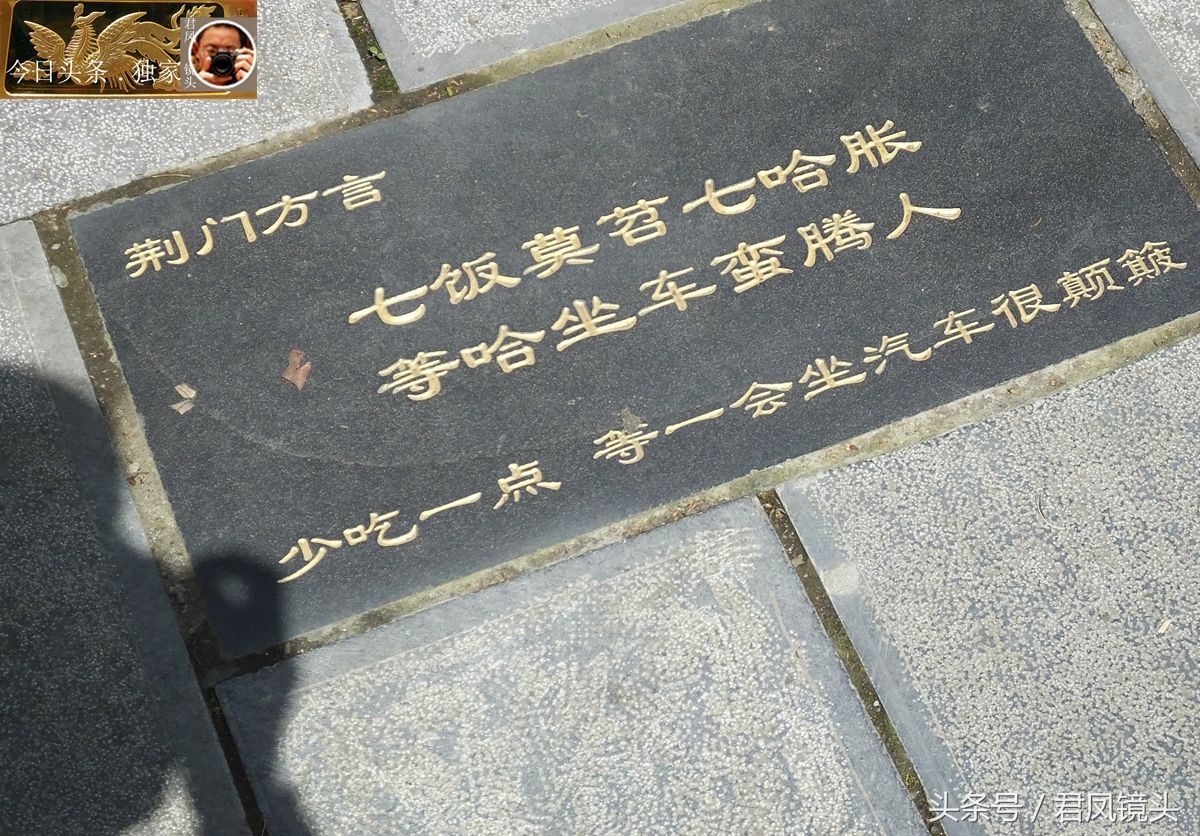 今日头条 独家
君凤
镜头
荆门方言
七饭莫苕七哈胀
等哈坐车蛮腾人
少吃一点 等一会坐汽车很颠簸
头条号 / 君凤镜头